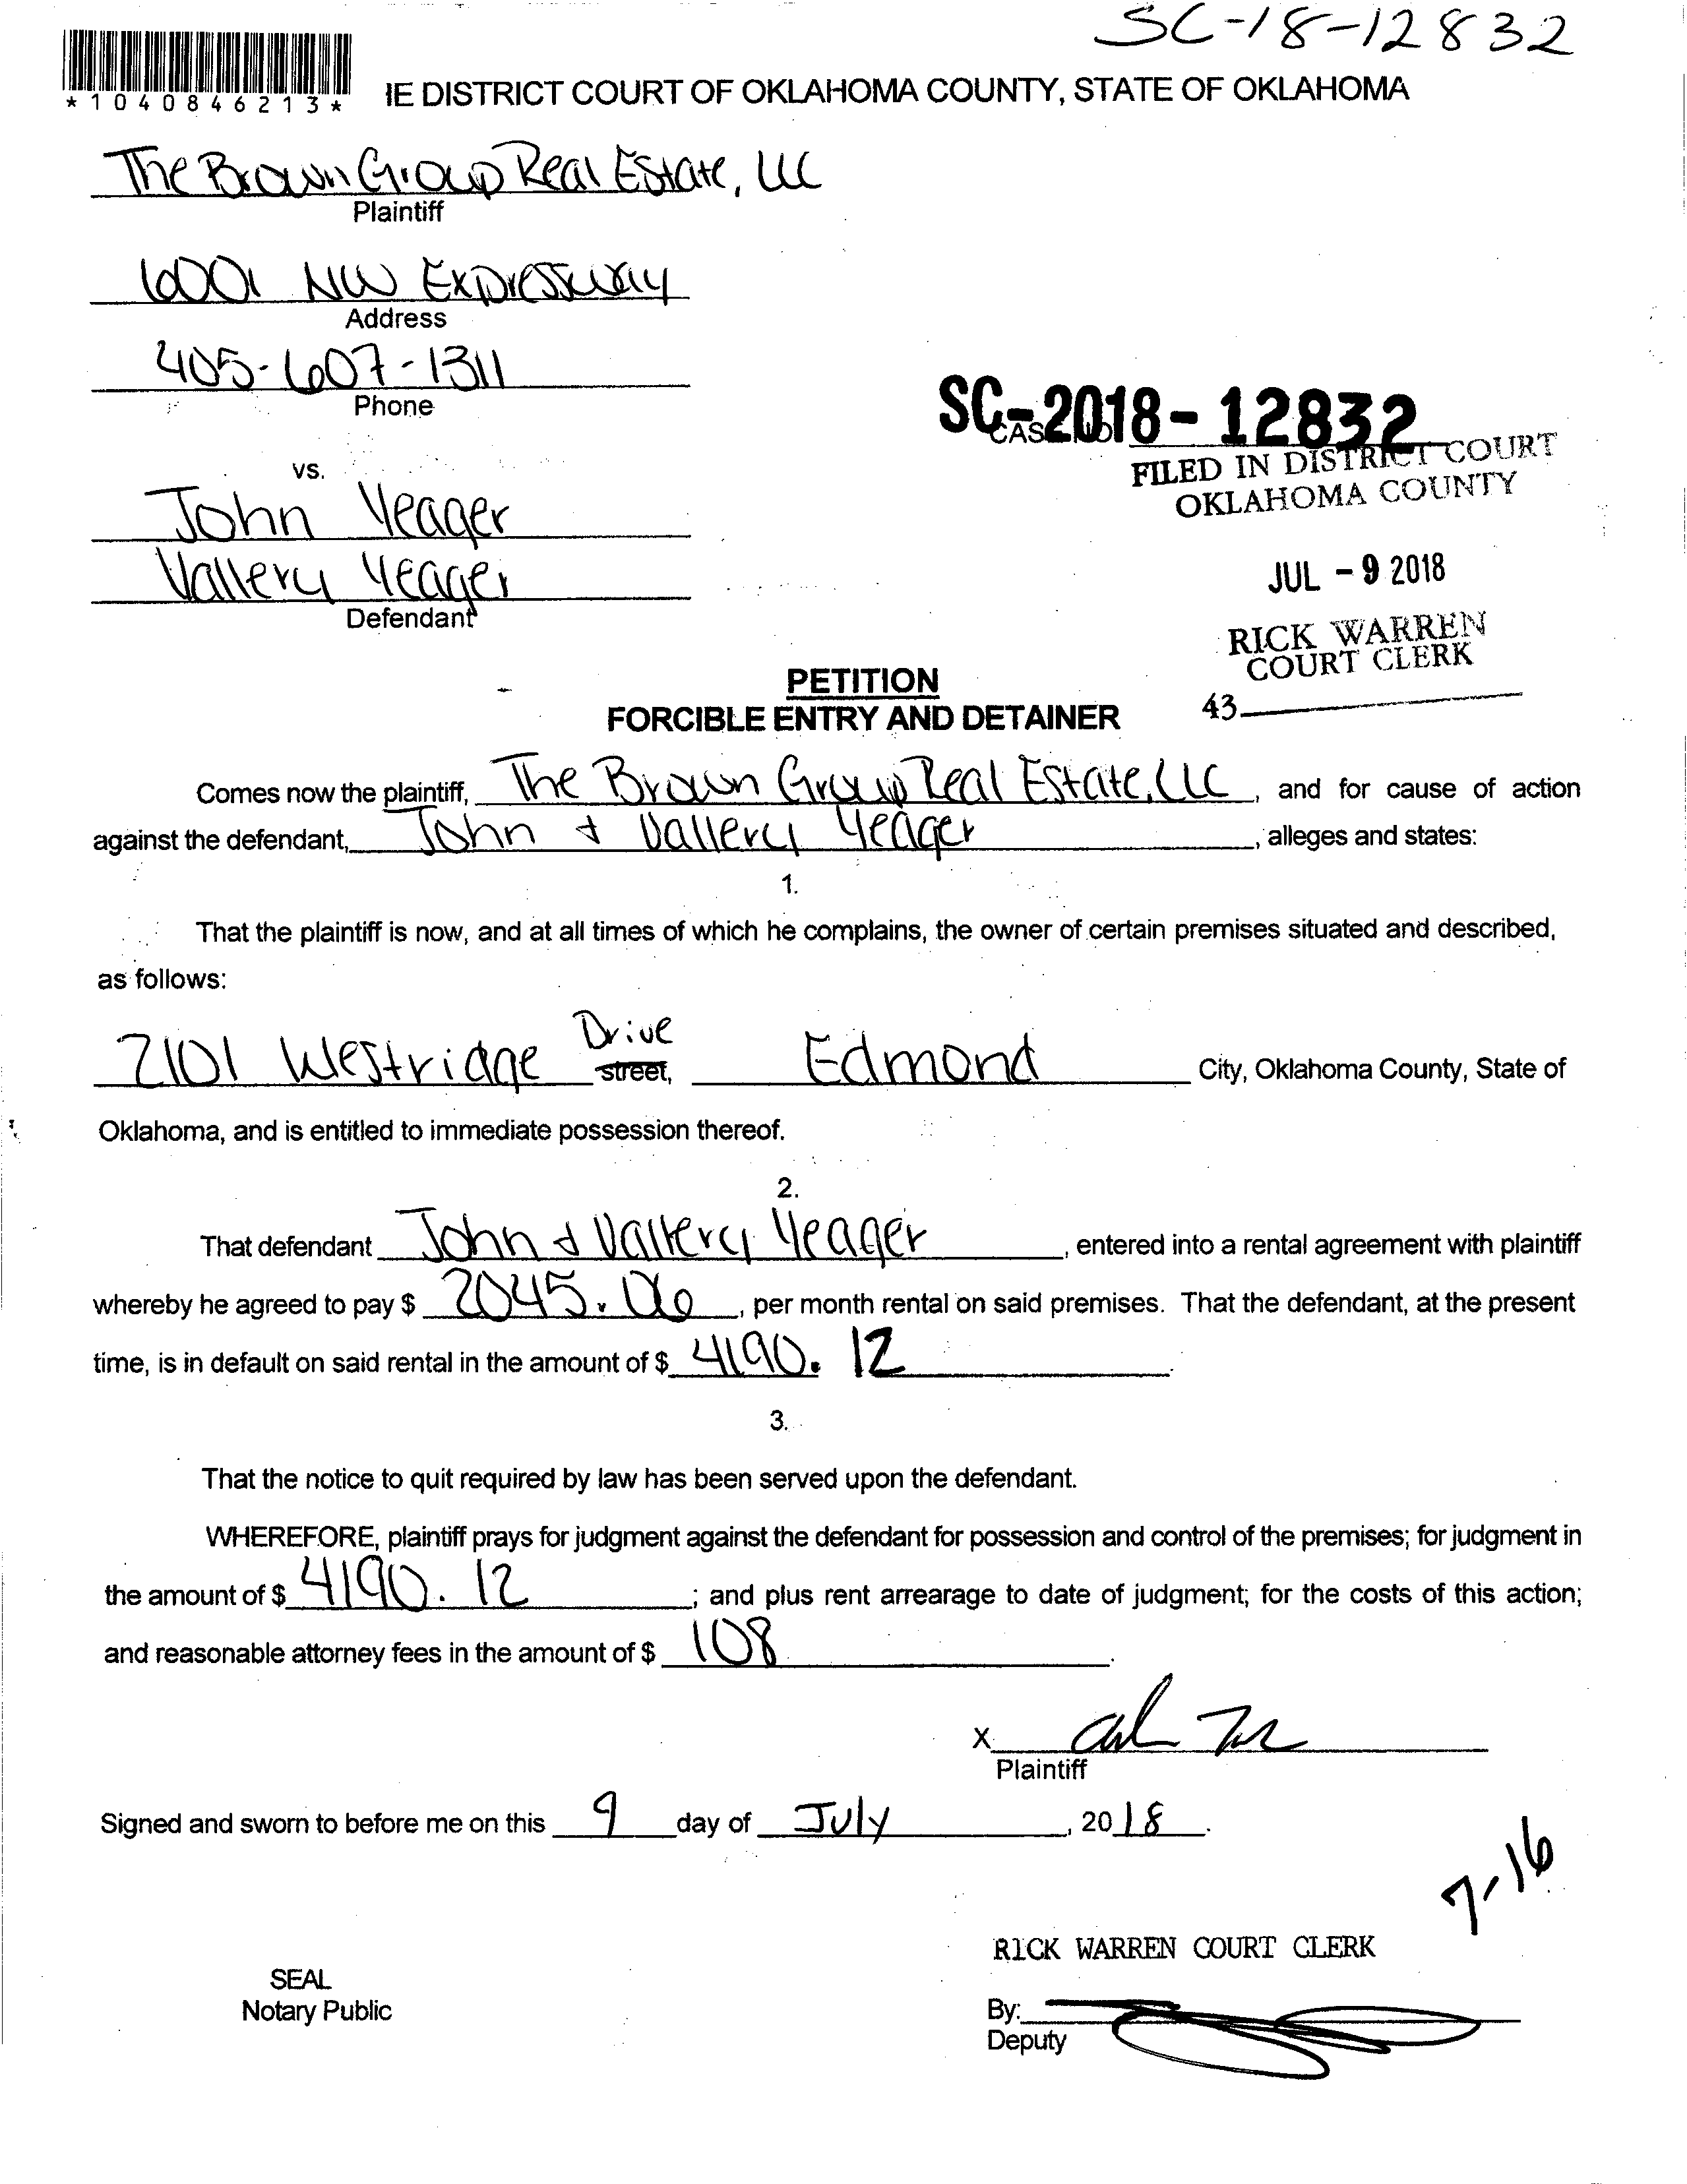 SC-18-12832
*1040846213*
IE DISTRICT COURT OF OKLAHOMA COUNTY, STATE OF OKLAHOMA
The Brown Group Real Estate, LLC
Plaintiff
6001 NW Expressway
Address
405-607-1311
Phone
SC-2018-12832
CAS
FILED IN DISTRICT COURT
OKLAHOMA COUNTY
vs.
John Yeager
Vallery Yeager
Defendant
JUL - 9 2018
RICK WARREN
COURT CLERK
43
PETITION
FORCIBLE ENTRY AND DETAINER
Comes now the plaintiff, The Brown Group Real Estate, LLC, and for cause of action
against the defendant, John & Vallery Yeager, alleges and states:
1.
That the plaintiff is now, and at all times of which he complains, the owner of certain premises situated and described,
as follows:
2101 Westridge Drive street, Edmond City, Oklahoma County, State of
Oklahoma, and is entitled to immediate possession thereof.
2.
That defendant John & Vallery Yeager, entered into a rental agreement with plaintiff
whereby he agreed to pay $ 2045.06, per month rental on said premises. That the defendant, at the present
time, is in default on said rental in the amount of $ 4190.12.
3.
That the notice to quit required by law has been served upon the defendant.
WHEREFORE, plaintiff prays for judgment against the defendant for possession and control of the premises; for judgment in
the amount of $ 4190.12; and plus rent arrearage to date of judgment; for the costs of this action;
and reasonable attorney fees in the amount of $ 108.
X
Plaintiff
Signed and sworn to before me on this 9 day of July, 2018.
7-16
RICK WARREN COURT CLERK
SEAL
Notary Public
By:
Deputy